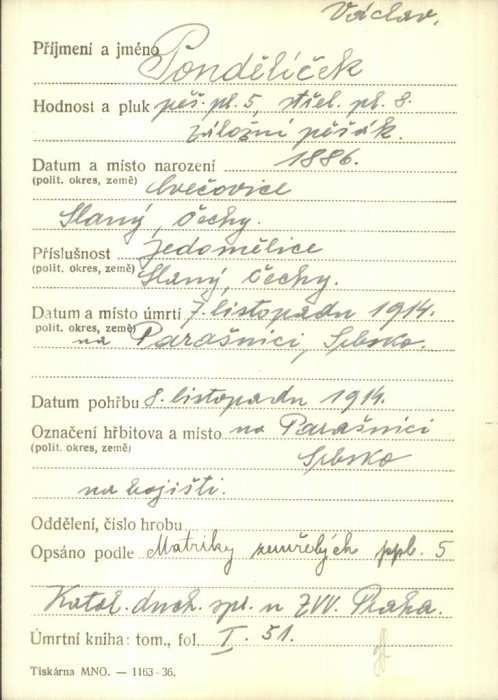 Václav,
Příjmení a jméno Pondělíček
Hodnost a pluk pěš. pl. 5, střel. pl. 8.
záložní pěšák.
Datum a místo narození 1886.
(polit. okres, země) Cvečovice
Slaný, Čechy.
Příslušnost Jedomělice
(polit. okres, země) Slaný, Čechy.
Datum a místo úmrtí 7. listopadu 1914.
polit. okres, země) na Parašnici, Srbsko.
Datum pohřbu 8. listopadu 1914.
Označení hřbitova a místo na Parašnici
(polit. okres, země) Srbsko
na bojišti.
Oddělení, číslo hrobu
Opsáno podle Matriky zemřelých ppl. 5
Katol. duch. spr. u ZVV. Praha.
Úmrtní kniha: tom., fol. I. 51.
Tiskárna MNO. — 1163-36.